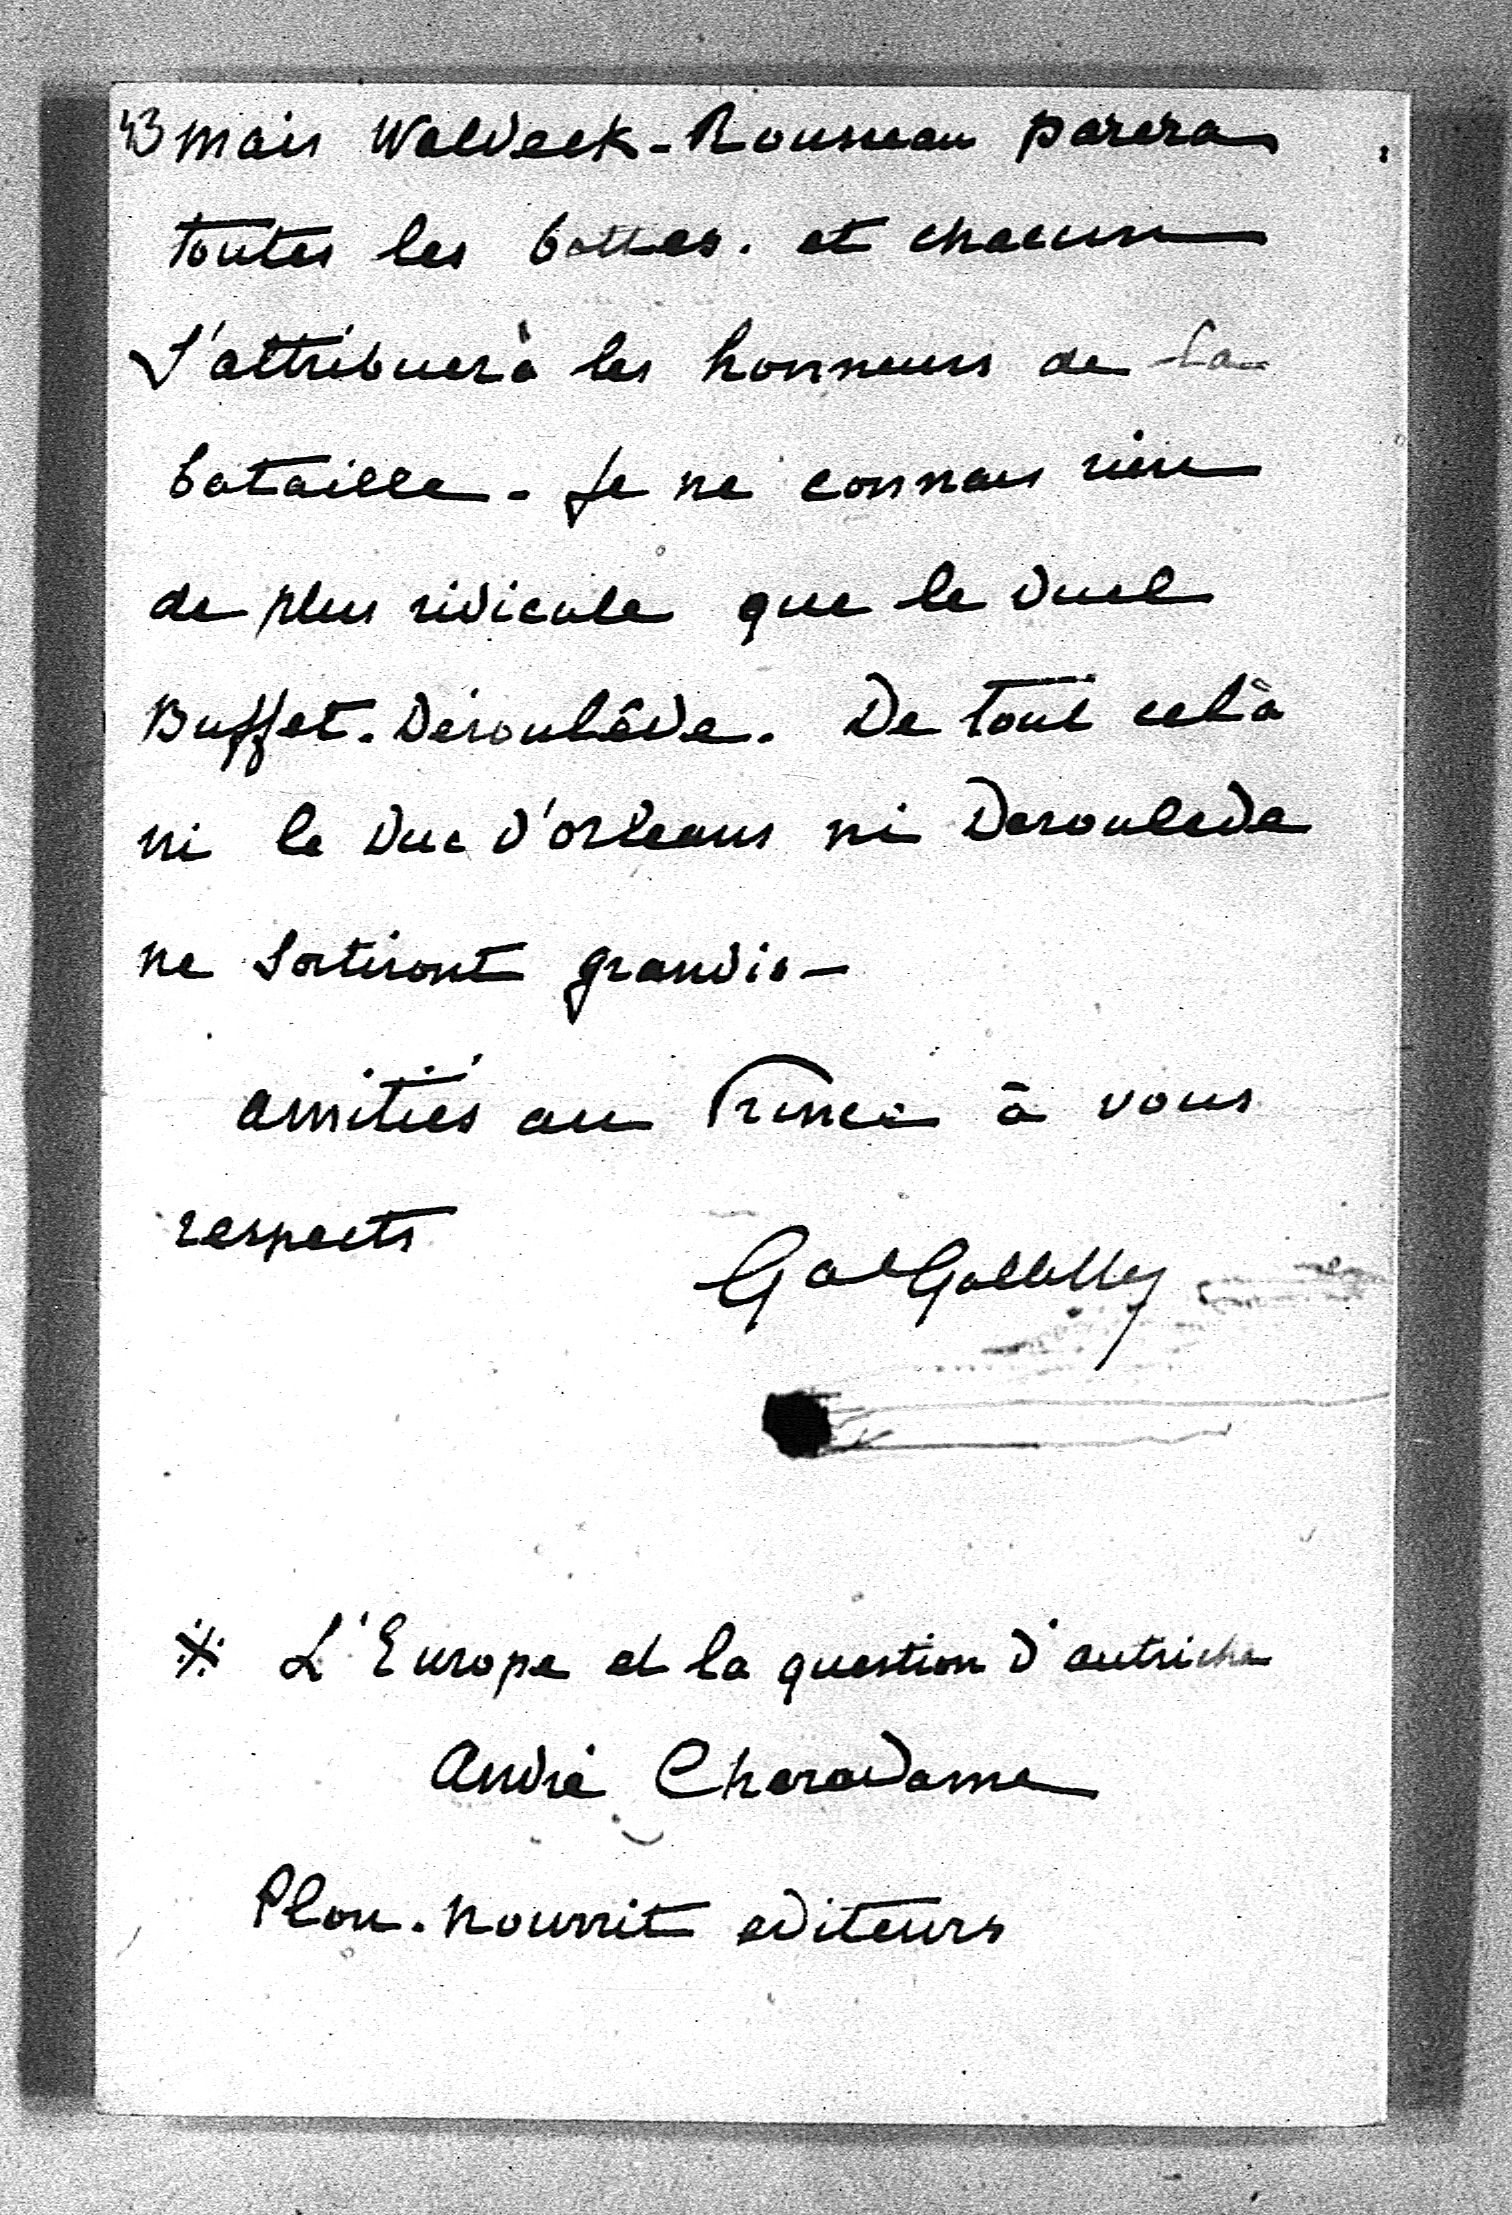 43 mais Waldeck-Rousseau parera
toutes les bottes. et chacun
s'attribuera les honneurs de la
bataille - Je ne connais rien
de plus ridicule que le duel
Buffet. Déroulède. De tout celà
ni le Duc d'orléans ni Deroulede
ne sortiront grandis -
amitiés au Prince à vous
respects
Gal Galliffet
※ L'Europe et la question d'autriche
André Cheradame
Plon. nourrit editeurs